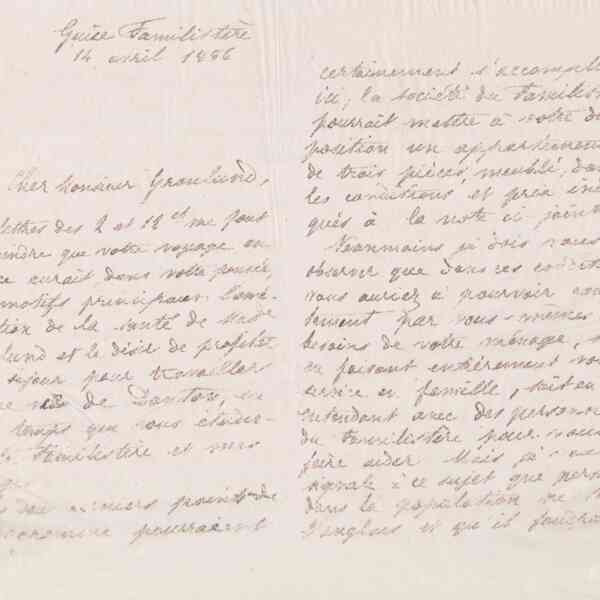 Guise Familistère
14 avril 1886
Cher Monsieur Gronlund,
lettres des 2 et 12 ct me font
indre que votre voyage en
ce aurait dans votre pensée,
motifs principaux l'amé-
tion de la santé de Made
lund et le désir de profiter
séjour pour travailler
de Danton, en
temps que vous étudier-
le Familistère et mes
premiers points de
économie pourraient
certainement s'accompli
ici, la société du Familis
pourrait mettre à votre dis
position un appartement
de trois pièces meublé, dan
les conditions et prix indi
qués à la note ci jointe
Néanmoins je dois vous
observer que dans ces condit
vous auriez à pourvoir
tement par vous-mêmes
besoins de votre ménage,
en faisant entièrement vo
service en famille, soit en
entendant avec des personn
du Familistère pour vous
faire aider Mais je
signale à ce sujet que pers
dans la population ne
l'anglais et qu'il faudra